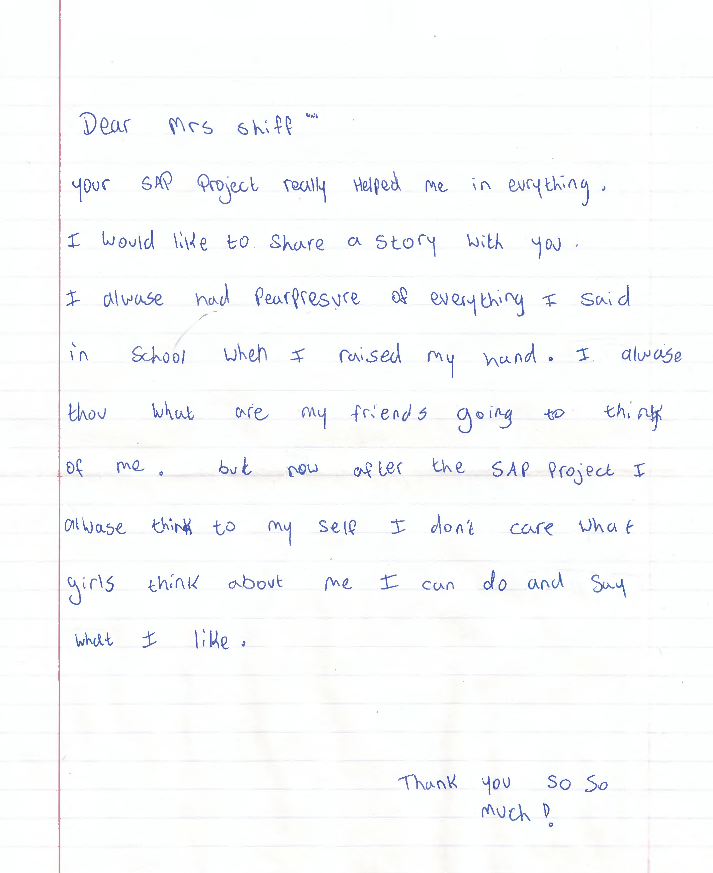 Dear Mrs shiff
your SAP Project really Helped me in evrything.
I would like to share a story with you.
I alwase had Pearpresure of everything I said
in school when I raised my hand. I alwase
thou what are my friends going to think
of me. but now after the SAP Project I
alwase think to my self I don't care what
girls think about me I can do and say
what I like.
Thank you so so
much!